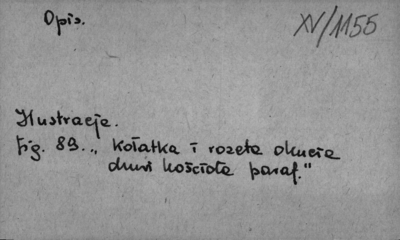 Opis. XV/1155
Ilustracje.
Fig. 89. „Kołatka i rozeta okucia
drzwi kościoła paraf."